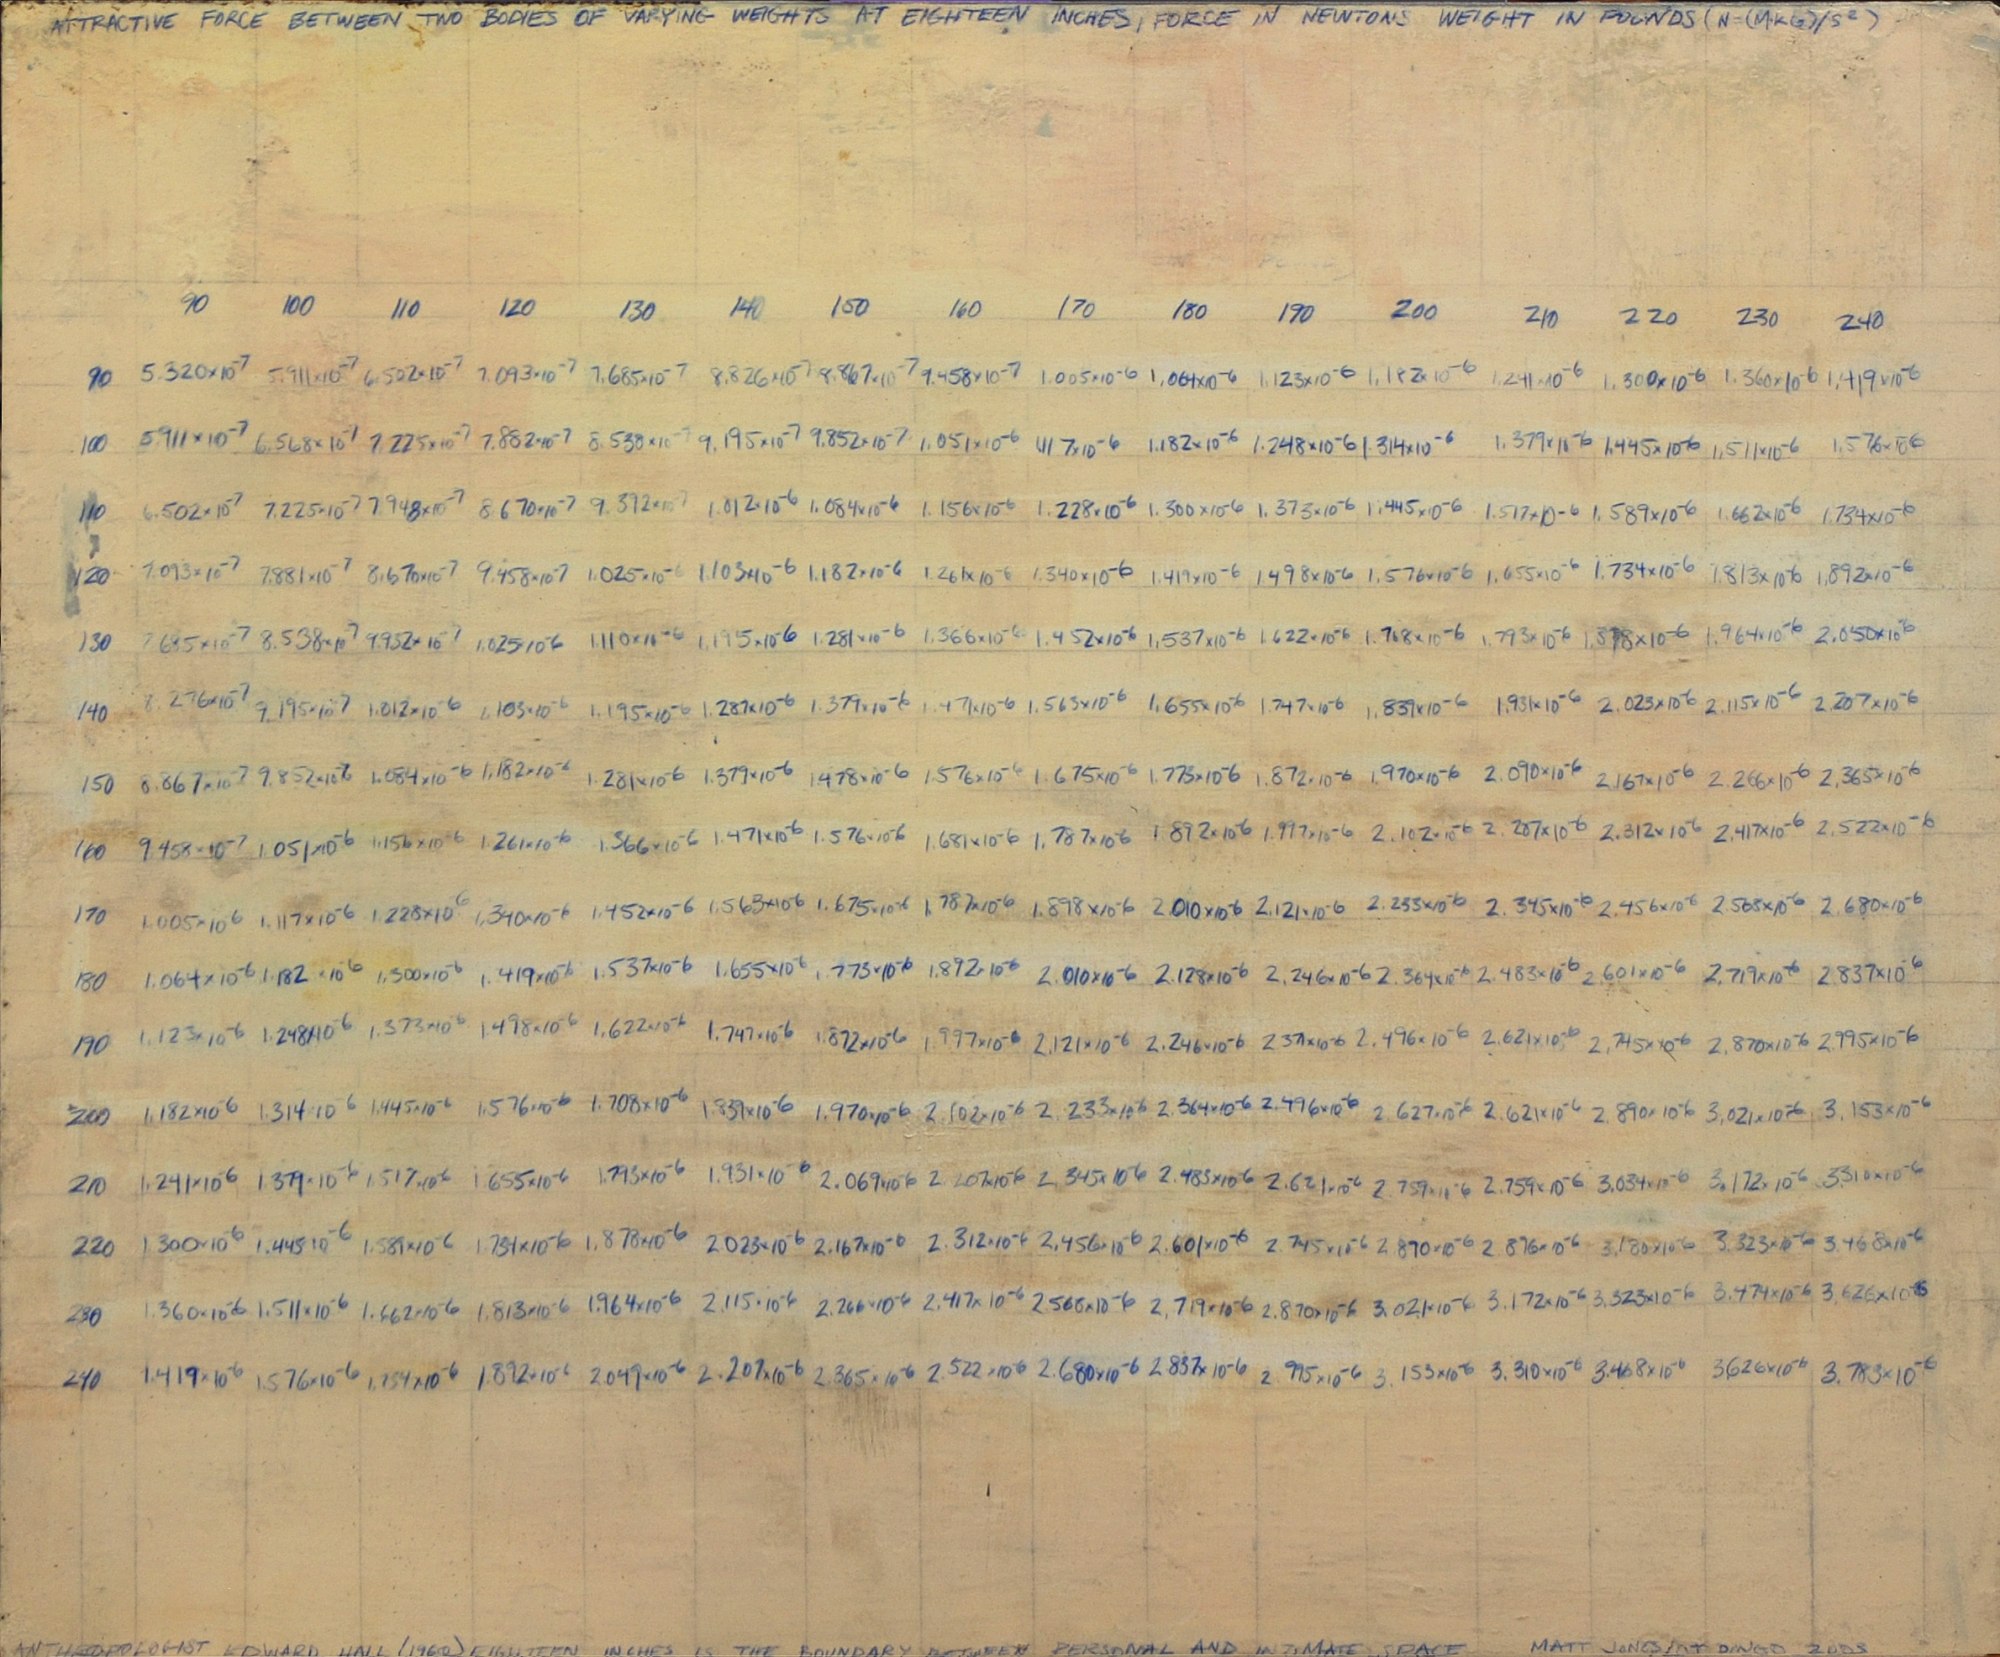 ATTRACTIVE FORCE BETWEEN TWO BODIES OF VARYING WEIGHTS AT EIGHTEEN INCHES, FORCE IN NEWTONS WEIGHT IN POUNDS (N=(M·KG)/S²)
90 100 110 120 130 140 150 160 170 180 190 200 210 220 230 240
90 5.320x10⁻⁷ 5.911x10⁻⁷ 6.502x10⁻⁷ 7.093x10⁻⁷ 7.685x10⁻⁷ 8.826x10⁻⁷ 8.867x10⁻⁷ 9.458x10⁻⁷ 1.005x10⁻⁶ 1.064x10⁻⁶ 1.123x10⁻⁶ 1.182x10⁻⁶ 1.241x10⁻⁶ 1.300x10⁻⁶ 1.360x10⁻⁶ 1.419x10⁻⁶
100 5.911x10⁻⁷ 6.568x10⁻⁷ 7.225x10⁻⁷ 7.882x10⁻⁷ 8.538x10⁻⁷ 9.195x10⁻⁷ 9.852x10⁻⁷ 1.051x10⁻⁶ 1.117x10⁻⁶ 1.182x10⁻⁶ 1.248x10⁻⁶ 1.314x10⁻⁶ 1.379x10⁻⁶ 1.445x10⁻⁶ 1.511x10⁻⁶ 1.576x10⁻⁶
110 6.502x10⁻⁷ 7.225x10⁻⁷ 7.948x10⁻⁷ 8.670x10⁻⁷ 9.392x10⁻⁷ 1.012x10⁻⁶ 1.084x10⁻⁶ 1.156x10⁻⁶ 1.228x10⁻⁶ 1.300x10⁻⁶ 1.373x10⁻⁶ 1.445x10⁻⁶ 1.517x10⁻⁶ 1.589x10⁻⁶ 1.662x10⁻⁶ 1.734x10⁻⁶
120 7.093x10⁻⁷ 7.881x10⁻⁷ 8.670x10⁻⁷ 9.458x10⁻⁷ 1.025x10⁻⁶ 1.103x10⁻⁶ 1.182x10⁻⁶ 1.261x10⁻⁶ 1.340x10⁻⁶ 1.419x10⁻⁶ 1.498x10⁻⁶ 1.576x10⁻⁶ 1.655x10⁻⁶ 1.734x10⁻⁶ 1.813x10⁻⁶ 1.892x10⁻⁶
130 7.685x10⁻⁷ 8.538x10⁻⁷ 9.932x10⁻⁷ 1.025x10⁻⁶ 1.110x10⁻⁶ 1.195x10⁻⁶ 1.281x10⁻⁶ 1.366x10⁻⁶ 1.452x10⁻⁶ 1.537x10⁻⁶ 1.622x10⁻⁶ 1.768x10⁻⁶ 1.793x10⁻⁶ 1.878x10⁻⁶ 1.964x10⁻⁶ 2.050x10⁻⁶
140 8.276x10⁻⁷ 9.195x10⁻⁷ 1.012x10⁻⁶ 1.103x10⁻⁶ 1.195x10⁻⁶ 1.287x10⁻⁶ 1.379x10⁻⁶ 1.471x10⁻⁶ 1.563x10⁻⁶ 1.655x10⁻⁶ 1.747x10⁻⁶ 1.839x10⁻⁶ 1.931x10⁻⁶ 2.023x10⁻⁶ 2.115x10⁻⁶ 2.207x10⁻⁶
150 8.867x10⁻⁷ 9.852x10⁻⁷ 1.084x10⁻⁶ 1.182x10⁻⁶ 1.281x10⁻⁶ 1.379x10⁻⁶ 1.478x10⁻⁶ 1.576x10⁻⁶ 1.675x10⁻⁶ 1.773x10⁻⁶ 1.872x10⁻⁶ 1.970x10⁻⁶ 2.090x10⁻⁶ 2.167x10⁻⁶ 2.266x10⁻⁶ 2.365x10⁻⁶
160 9.458x10⁻⁷ 1.051x10⁻⁶ 1.156x10⁻⁶ 1.261x10⁻⁶ 1.366x10⁻⁶ 1.471x10⁻⁶ 1.576x10⁻⁶ 1.681x10⁻⁶ 1.787x10⁻⁶ 1.892x10⁻⁶ 1.997x10⁻⁶ 2.102x10⁻⁶ 2.207x10⁻⁶ 2.312x10⁻⁶ 2.417x10⁻⁶ 2.522x10⁻⁶
170 1.005x10⁻⁶ 1.117x10⁻⁶ 1.228x10⁻⁶ 1.340x10⁻⁶ 1.452x10⁻⁶ 1.563x10⁻⁶ 1.675x10⁻⁶ 1.787x10⁻⁶ 1.898x10⁻⁶ 2.010x10⁻⁶ 2.121x10⁻⁶ 2.233x10⁻⁶ 2.345x10⁻⁶ 2.456x10⁻⁶ 2.568x10⁻⁶ 2.680x10⁻⁶
180 1.064x10⁻⁶ 1.182x10⁻⁶ 1.300x10⁻⁶ 1.419x10⁻⁶ 1.537x10⁻⁶ 1.655x10⁻⁶ 1.773x10⁻⁶ 1.892x10⁻⁶ 2.010x10⁻⁶ 2.128x10⁻⁶ 2.246x10⁻⁶ 2.364x10⁻⁶ 2.483x10⁻⁶ 2.601x10⁻⁶ 2.719x10⁻⁶ 2.837x10⁻⁶
190 1.123x10⁻⁶ 1.248x10⁻⁶ 1.373x10⁻⁶ 1.498x10⁻⁶ 1.622x10⁻⁶ 1.747x10⁻⁶ 1.872x10⁻⁶ 1.997x10⁻⁶ 2.121x10⁻⁶ 2.246x10⁻⁶ 2.371x10⁻⁶ 2.496x10⁻⁶ 2.621x10⁻⁶ 2.745x10⁻⁶ 2.870x10⁻⁶ 2.995x10⁻⁶
200 1.182x10⁻⁶ 1.314x10⁻⁶ 1.445x10⁻⁶ 1.576x10⁻⁶ 1.708x10⁻⁶ 1.839x10⁻⁶ 1.970x10⁻⁶ 2.102x10⁻⁶ 2.233x10⁻⁶ 2.364x10⁻⁶ 2.496x10⁻⁶ 2.627x10⁻⁶ 2.621x10⁻⁶ 2.890x10⁻⁶ 3.021x10⁻⁶ 3.153x10⁻⁶
210 1.241x10⁻⁶ 1.379x10⁻⁶ 1.517x10⁻⁶ 1.655x10⁻⁶ 1.793x10⁻⁶ 1.931x10⁻⁶ 2.069x10⁻⁶ 2.207x10⁻⁶ 2.345x10⁻⁶ 2.483x10⁻⁶ 2.621x10⁻⁶ 2.759x10⁻⁶ 2.759x10⁻⁶ 3.034x10⁻⁶ 3.172x10⁻⁶ 3.310x10⁻⁶
220 1.300x10⁻⁶ 1.445x10⁻⁶ 1.589x10⁻⁶ 1.734x10⁻⁶ 1.878x10⁻⁶ 2.023x10⁻⁶ 2.167x10⁻⁶ 2.312x10⁻⁶ 2.456x10⁻⁶ 2.601x10⁻⁶ 2.745x10⁻⁶ 2.890x10⁻⁶ 2.896x10⁻⁶ 3.180x10⁻⁶ 3.323x10⁻⁶ 3.468x10⁻⁶
230 1.360x10⁻⁶ 1.511x10⁻⁶ 1.662x10⁻⁶ 1.813x10⁻⁶ 1.964x10⁻⁶ 2.115x10⁻⁶ 2.266x10⁻⁶ 2.417x10⁻⁶ 2.568x10⁻⁶ 2.719x10⁻⁶ 2.870x10⁻⁶ 3.021x10⁻⁶ 3.172x10⁻⁶ 3.323x10⁻⁶ 3.474x10⁻⁶ 3.626x10⁻⁶
240 1.419x10⁻⁶ 1.576x10⁻⁶ 1.734x10⁻⁶ 1.892x10⁻⁶ 2.049x10⁻⁶ 2.207x10⁻⁶ 2.365x10⁻⁶ 2.522x10⁻⁶ 2.680x10⁻⁶ 2.837x10⁻⁶ 2.995x10⁻⁶ 3.153x10⁻⁶ 3.310x10⁻⁶ 3.468x10⁻⁶ 3.626x10⁻⁶ 3.783x10⁻⁶
ANTHROPOLOGIST EDWARD HALL (1960) EIGHTEEN INCHES IS THE BOUNDARY BETWEEN PERSONAL AND INTIMATE SPACE MATT JONES DINGO 2003